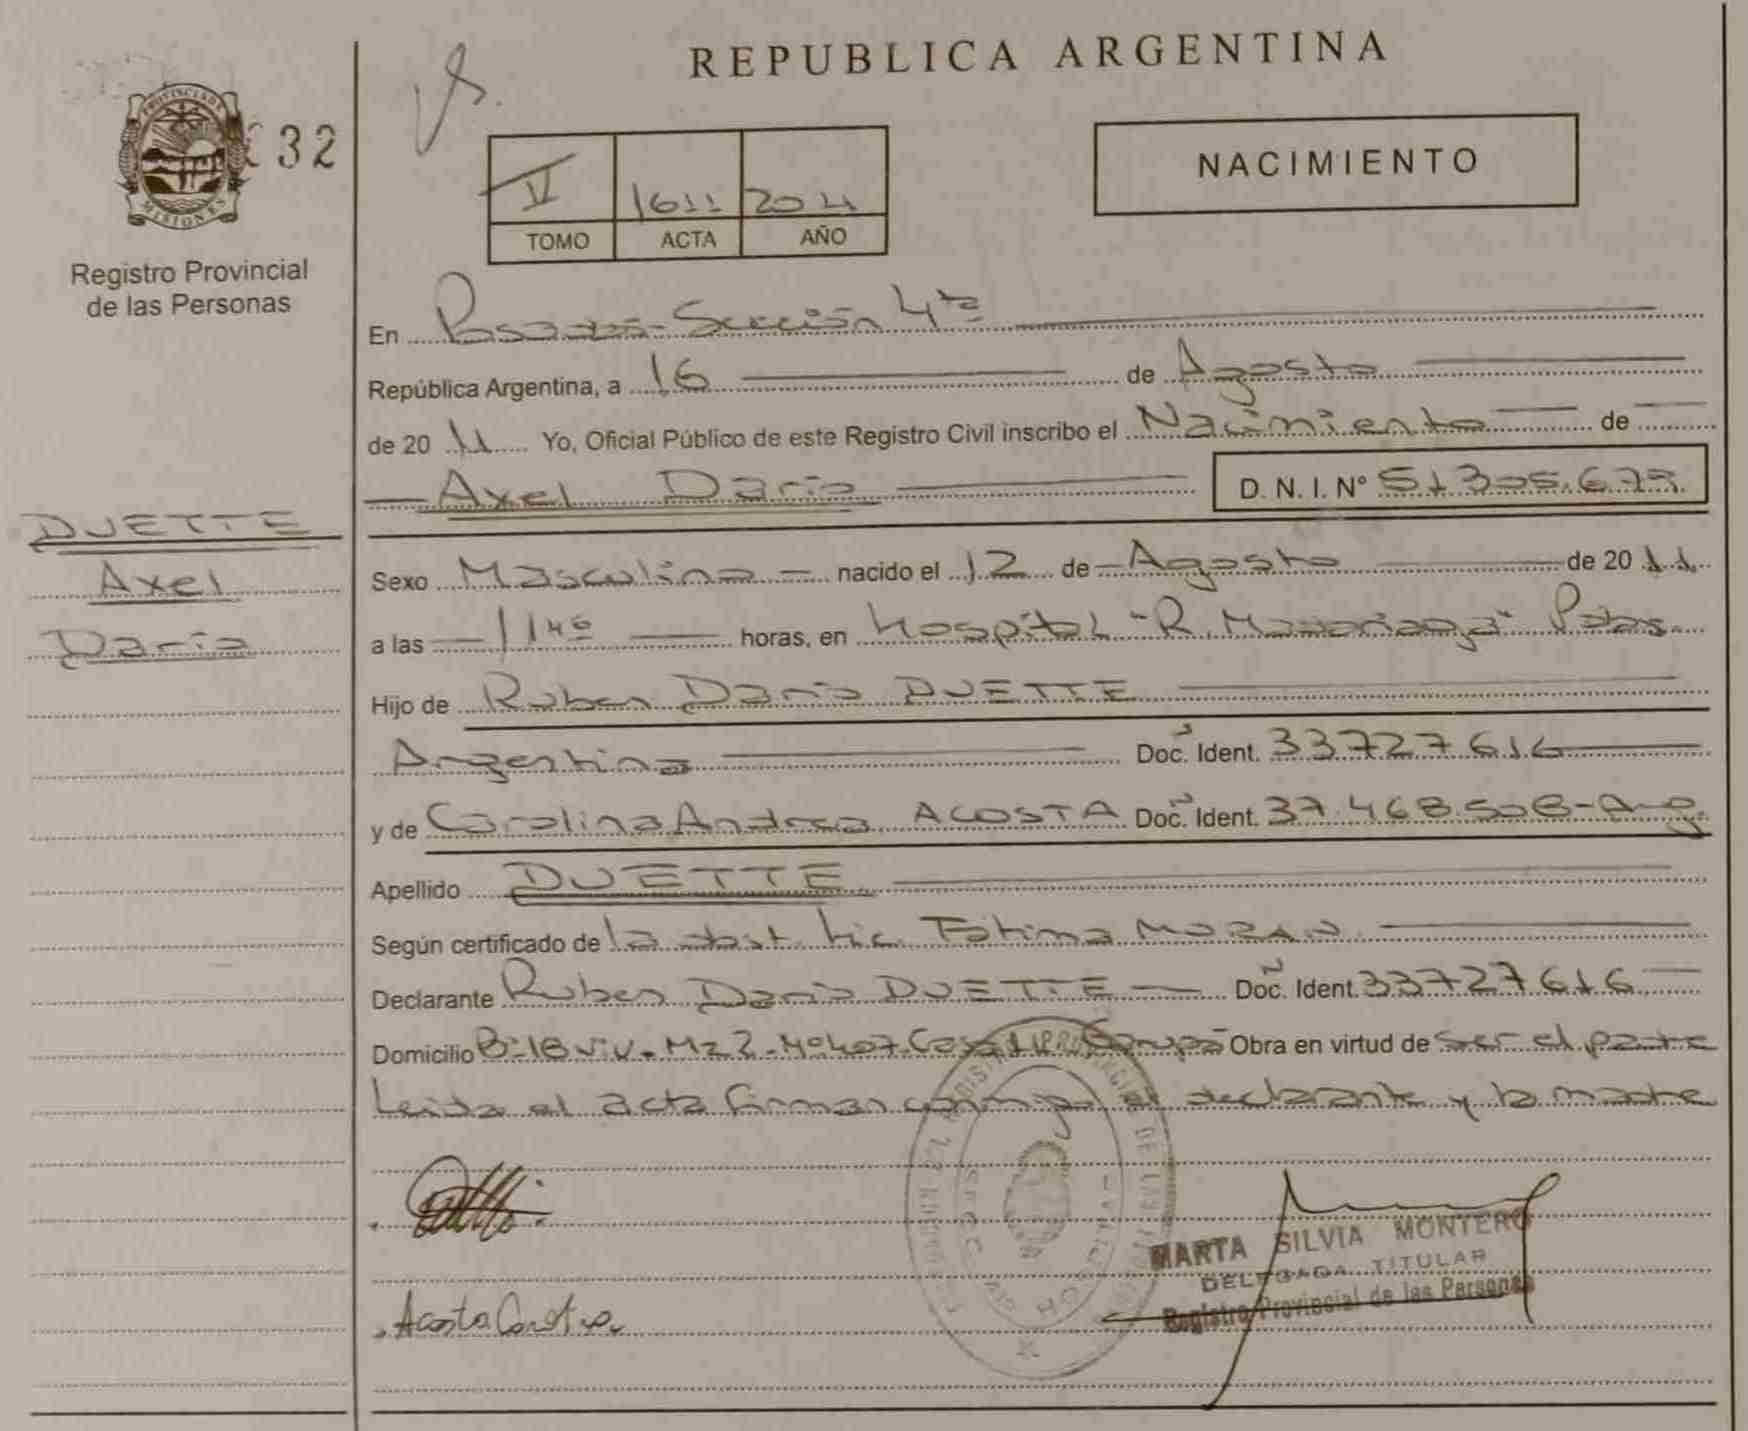 REPUBLICA ARGENTINA
PROVINCIA DE MISIONES
32
Registro Provincial
de las Personas
NACIMIENTO
TOMO ACTA AÑO
V 1611 2011
En Posadas - Sección 4ta
República Argentina, a 16 de Agosto
de 20 11 Yo, Oficial Público de este Registro Civil inscribo el Nacimiento de
Axel Dario D. N. I. Nº 51305.679
DUETTE
Axel
Dario
Sexo Masculino nacido el 12 de Agosto de 20 11
a las 11 horas, en Hospital "R. Madariaga" Pdas.
Hijo de Ruben Dario DUETTE
Argentino Doc. Ident. 33727616
y de Carolina Andrea ACOSTA Doc. Ident. 37.468.508-Arg.
Apellido DUETTE
Según certificado de la obst. Lic. Fatima MORAN
Declarante Ruben Dario DUETTE Doc. Ident. 33727616
Domicilio Bº 18 viv. Mz 2 - Nº 407 - Casa Garupá Obra en virtud de ser el padre
Leida el acta firman conmigo el declarante y la madre
Acosta
MARTA SILVIA MONTERO
DELEGADA TITULAR
Registro Provincial de las Personas